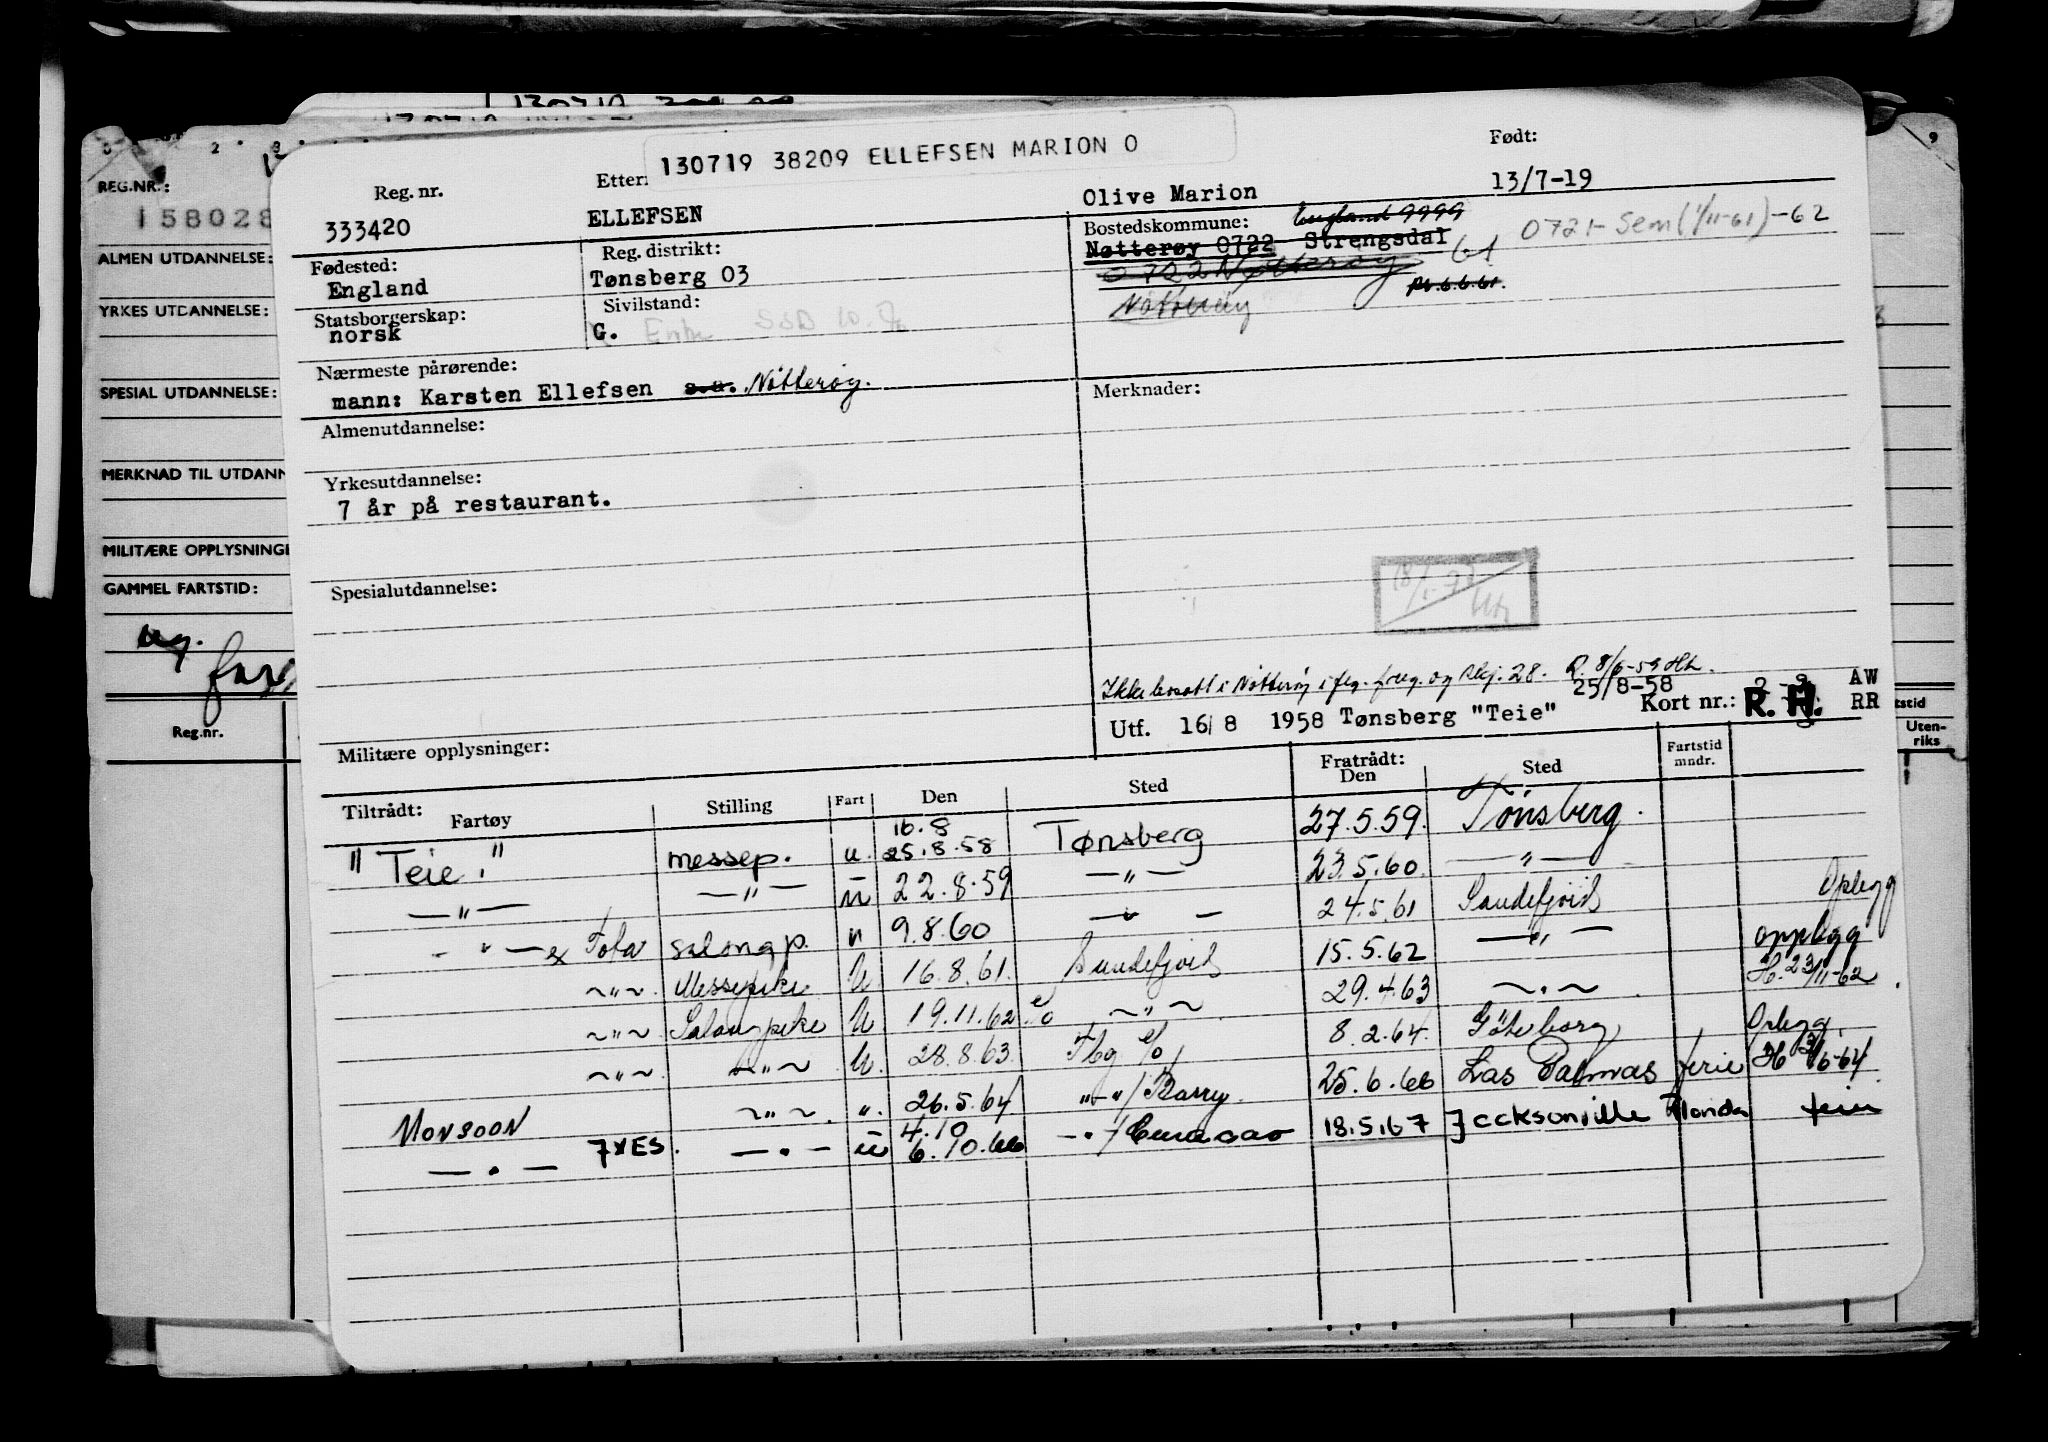 130719
2 3 9
REG.NR.:
158028
ALMEN UTDANNELSE:
YRKES UTDANNELSE:
SPESIAL UTDANNELSE:
MERKNAD TIL UTDANN
MILITÆRE OPPLYSNINGE
GAMMEL FARTSTID:
ug.
Reg.nr.
tstid
Uten-
riks
130719 38209 ELLEFSEN MARION O
Reg. nr. Etter Født:
333420 ELLEFSEN Olive Marion 13/7-19
Fødested: Reg. distrikt: Bostedskommune: England 9999
England Tønsberg 03 Nøtterøy 0722 Strengsdal 61 0721- Sem (1/11-61) -62
0722 Nøtterøy
Statsborgerskap: Sivilstand: Nøtterøy 6.6.61.
norsk G.
Nærmeste pårørende: Merknader:
mann: Karsten Ellefsen s.a. Nøtterøy.
Almenutdannelse:
Yrkesutdannelse:
7 år på restaurant.
Spesialutdannelse:
Ikke bosatt i Nøtterøy i flg. freg. og Skj. 28. R. 8/6-59 Hh.
25/8-58
Utf. 16/8 1958 Tønsberg "Teie" Kort nr.: R. H. AW
RR
Militære opplysninger:
Tiltrådt: Fartøy Stilling Fart Den Sted Fratrådt: Den Sted Fartstid mndr.
"Teie." messep. u. 16.8 25.8.58 Tønsberg 27.5.59. Tønsberg.
—"— —"— u 22.8.59 —"— 23.5.60. —"—
—"— salongp. u 9.8.60 —"— 24.5.61 Sandefjord Oplegg
ex Tola Messepike U 16.8.61. Sandefjord 15.5.62 —"— opplegg
~"~ Salongpike U 19.11.62 ~"~ 29.4.63 ~"~ H. 23/11-62
~"~ ~"~ U. 28.8.63. Tbg 8.2.64. Göteborg Oplegg.
MONSOON ~"~ ". 26.5.64 "-"/ Barry. 25.6.66 Las Palmas ferie
—"— 7XES. —"— u 4.10 6.10.66 —"/ Curacao 18.5.67 Jacksonville Florida ferie